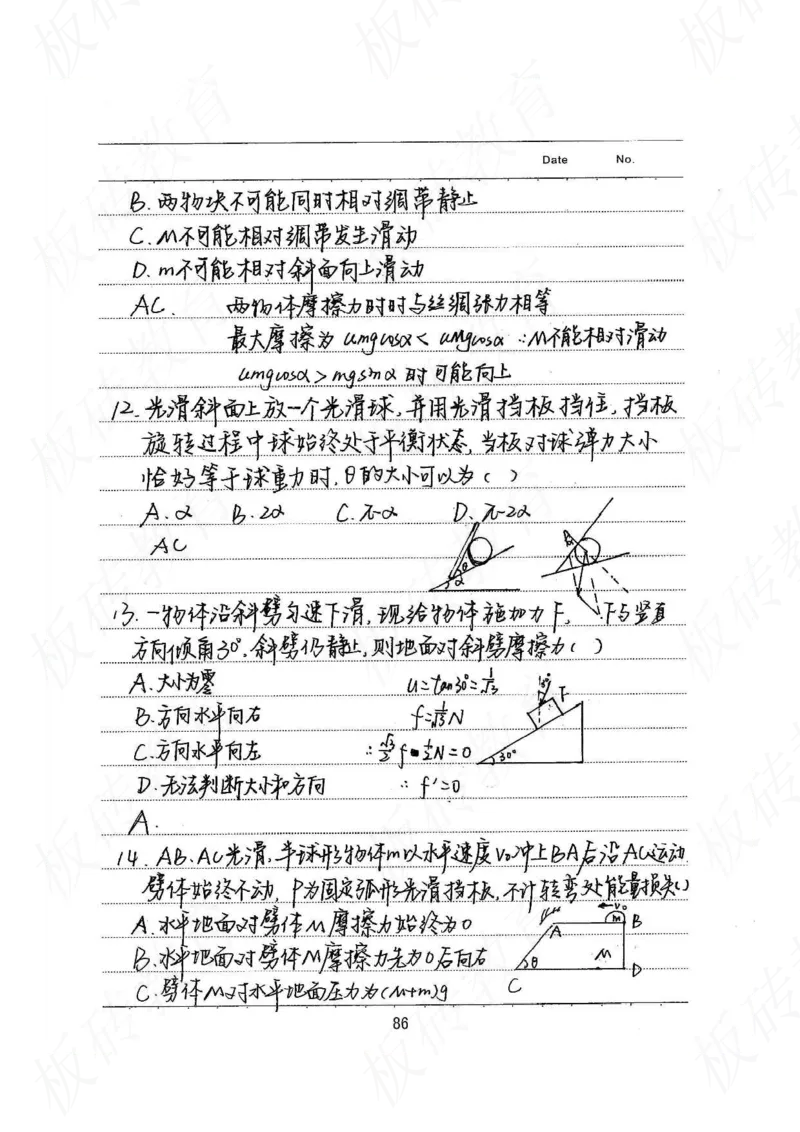 Date No.
B. 两物块不可能同时相对绸带静止
C. M不可能相对绸带发生滑动
D. m不可能相对斜面向上滑动
AC. 两物体摩擦力时时与丝绸张力相等
最大摩擦为 umgcosα < uMgcosα ∴M不能相对滑动
umgcosα > mgsinα 时可能向上
12. 光滑斜面上放一个光滑球,并用光滑挡板挡住,挡板
旋转过程中球始终处于平衡状态,当板对球弹力大小
恰好等于球重力时,θ的大小可以为( )
A. α B. 2α C. π-α D. π-2α
AC
θ
α
13. 一物体沿斜劈匀速下滑,现给物体施加力F, F与竖直
方向倾角30°,斜劈仍静止,则地面对斜劈摩擦力( )
A. 大小为零 u=tan30°=1/√3
B. 方向水平向右 f=1/√3 N
C. 方向水平向左 ∴ √3/2 f - 1/2 N = 0
D. 无法判断大小和方向 ∴ f'=0
30° F
30°
A.
14. AB、AC光滑,半球形物体m以水平速度V₀冲上BA后沿AC运动
劈体始终不动,P为固定弧形光滑挡板,不计转弯处能量损失()
A. 水平地面对劈体M摩擦力始终为0
B. 水平地面对劈体M摩擦力先为0后向右
C. 劈体M对水平地面压力为(M+m)g
V₀
A m B
θ M
C D
86
板砖教育